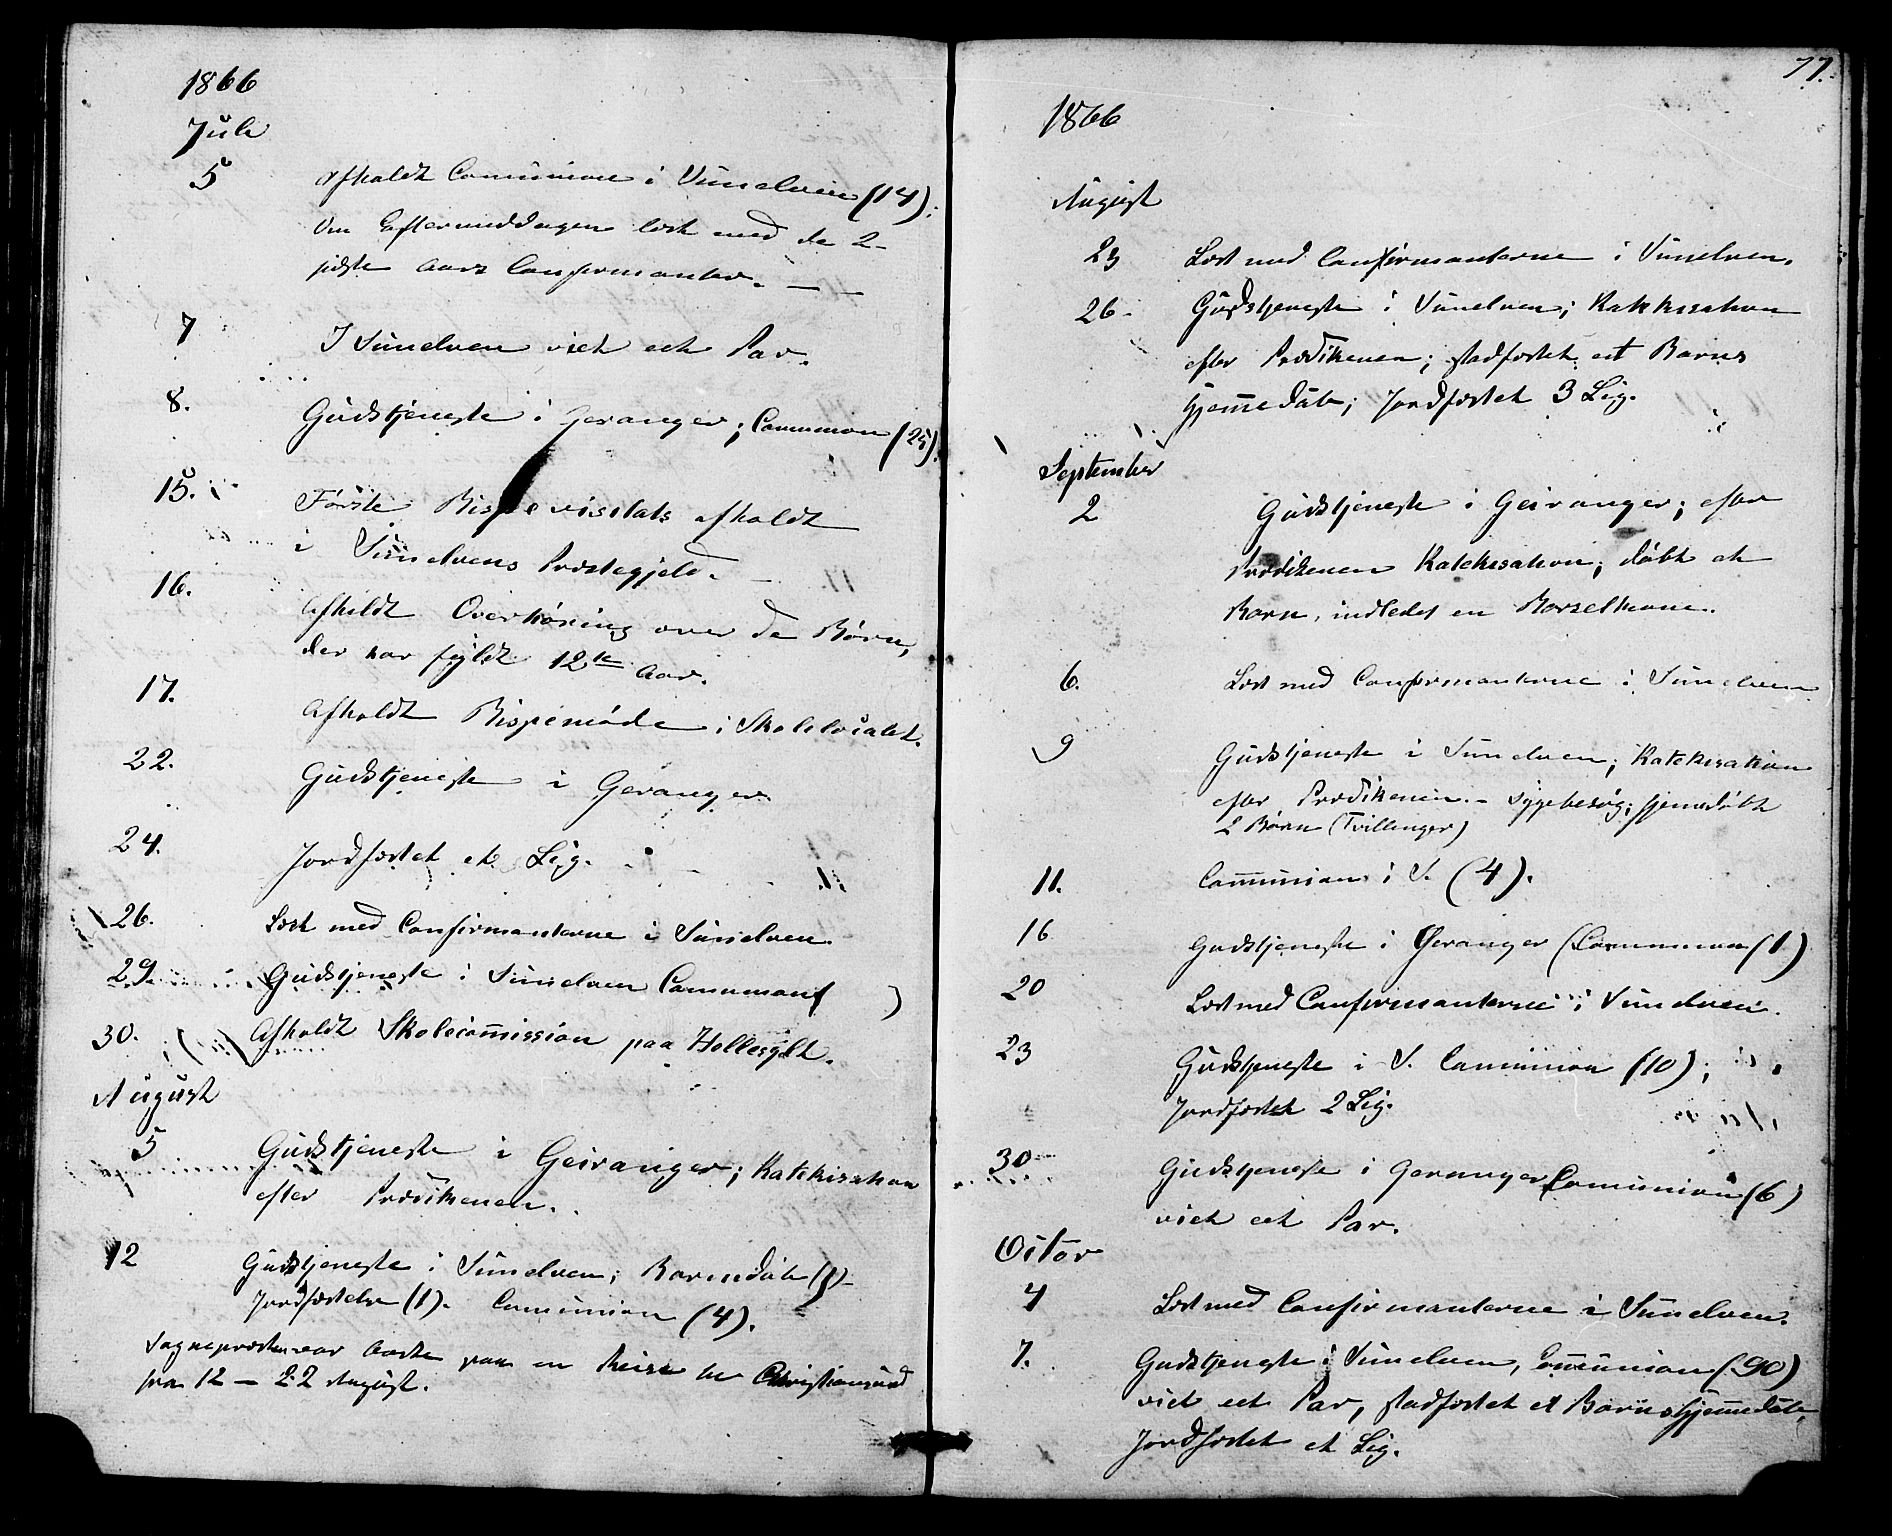 1866
Juli
5 Afholdt Communion i Sunelven (14);
Om Eftermiddagen læst med de 2-
sidste Aars Confirmanter. — —
7 I Sunelven viet eet Par.
8. Gudstjeneste i Geranger; Communion (25).
15. Første Bispevisitats afholdt
i Sunelvens Præstegjeld.
16. Afholdt Overhøring over de Børn,
der har fyldt 12te Aar.
17. Afholdt Bispemøde i Skolelocalet.
22. Gudstjeneste i Geranger.
24. Jordfæstet et Lig.
26. Læst med Confirmanterne i Sunelven.
29. Gudstjeneste i Sunelven Communion ( )
30. Afholdt Skolecommission paa Hellesylt.
August
5 Gudstjeneste i Geiranger; Katekisation
efter Prædikenen.
12 Gudstjeneste i Sunelven; Barnedåb (1)-
Jordfæstelse (1). Communion (4).
Sognepræsten var borte paa en Reise til Christiansund
fra 12 – 22 August.
77.
1866
August
23 Læst med Confirmanterne i Sunelven.
26- Gudstjeneste i Sunelven; Katekisation
efter Prædikenen; stadfæstet eet Barns
Hjemmedåb; Jordfæstet 3 Lig.
September
2 Gudstjeneste i Geiranger; efter
Prædikenen Katekisation; døbt et
Barn, indledet en Barselkone.
6. Læst med Confirmanterne i Sunelven
9 Gudstjeneste i Sunelven; Katekisation
efter Prædikenen. – Sygebesøg; hjemmedøbt
2 Børn (Tvillinger)
11. Communion i S. (4).
16 Gudstjeneste i Geranger (Communion (1)
20 Læst med Confirmanterne i Sunelven.
23 Gudstjeneste i S. Communion (10);
Jordfæstet 2 Lig.
30 Gudstjeneste i Geranger Communion (6)
viet eet Par.
Octbr
4 Læst med Confirmanterne i Sunelven.
7. Gudstjeneste i Sunelven, Communion (90)
viet eet Par, stadfæstet et Barns Hjemmedåb,
Jordfæstet et Lig.